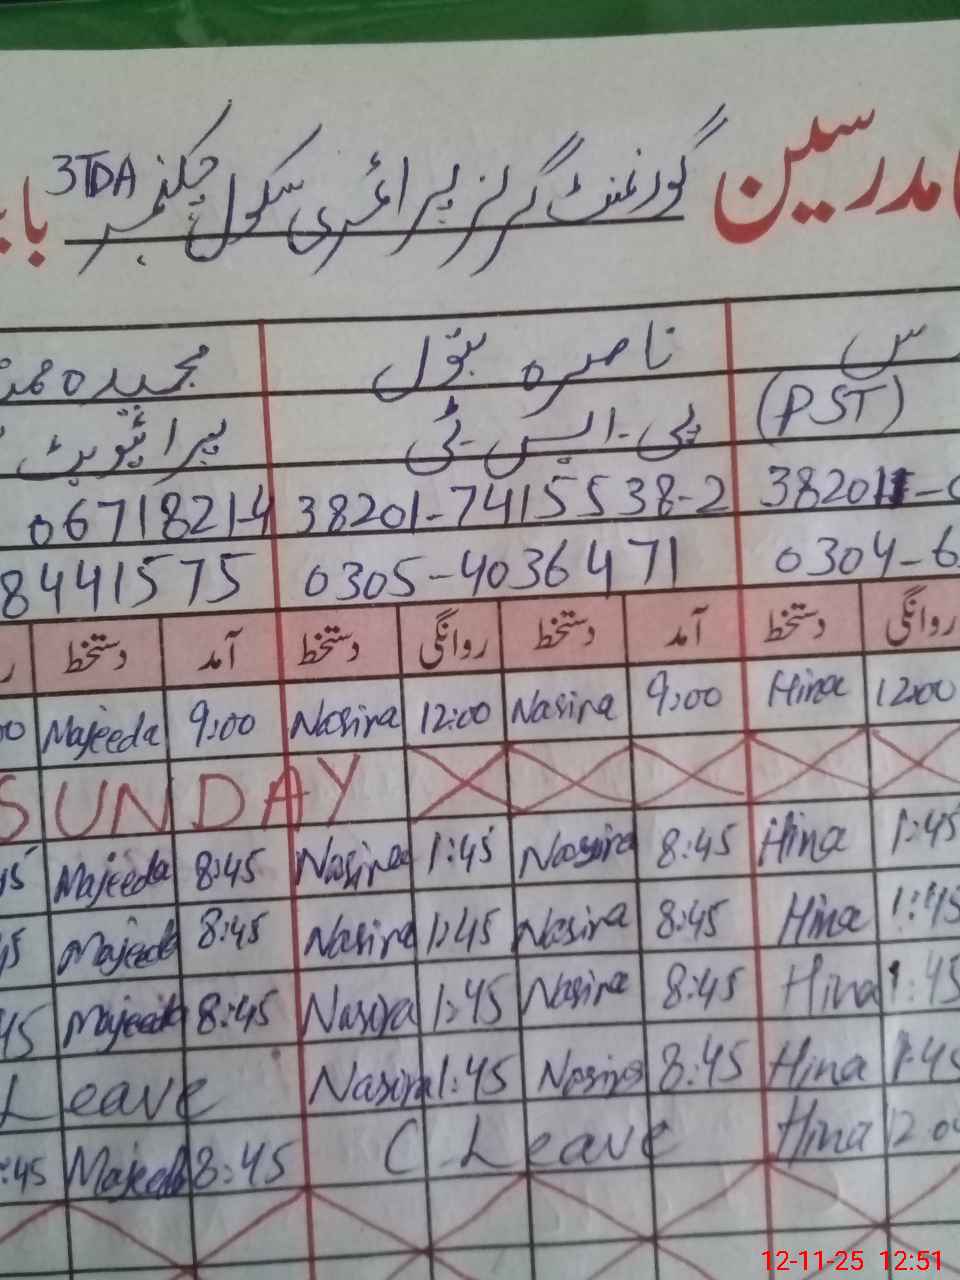 مدرسین گورنمنٹ گرلز پرائمری سکول چکنمبر 3TDA
ناصرہ بتول مجیدہ
(PST) پی-ایس-ٹی پرائیویٹ
38201- 38201-7415538-2 06718214
0304-6 0305-4036471 8441575
روانگی دستخط آمد روانگی دستخط آمد دستخط
12:00 Hina 9:00 Nasira 12:00 Nasira 9:00 Majeeda 00
SUNDAY
1:45 Hina 8:45 Nasira 1:45 Nasira 8:45 Majeeda 45
1:45 Hina 8:45 Nasira 1:45 Nasira 8:45 Majeeda 45
1:45 Hina 8:45 Nasira 1:45 Nasira 8:45 Majeeda 45
1:45 Hina 8:45 Nasira 1:45 Nasira Leave
Hina C-Leave 8:45 Majeeda :45
12-11-25 12:51